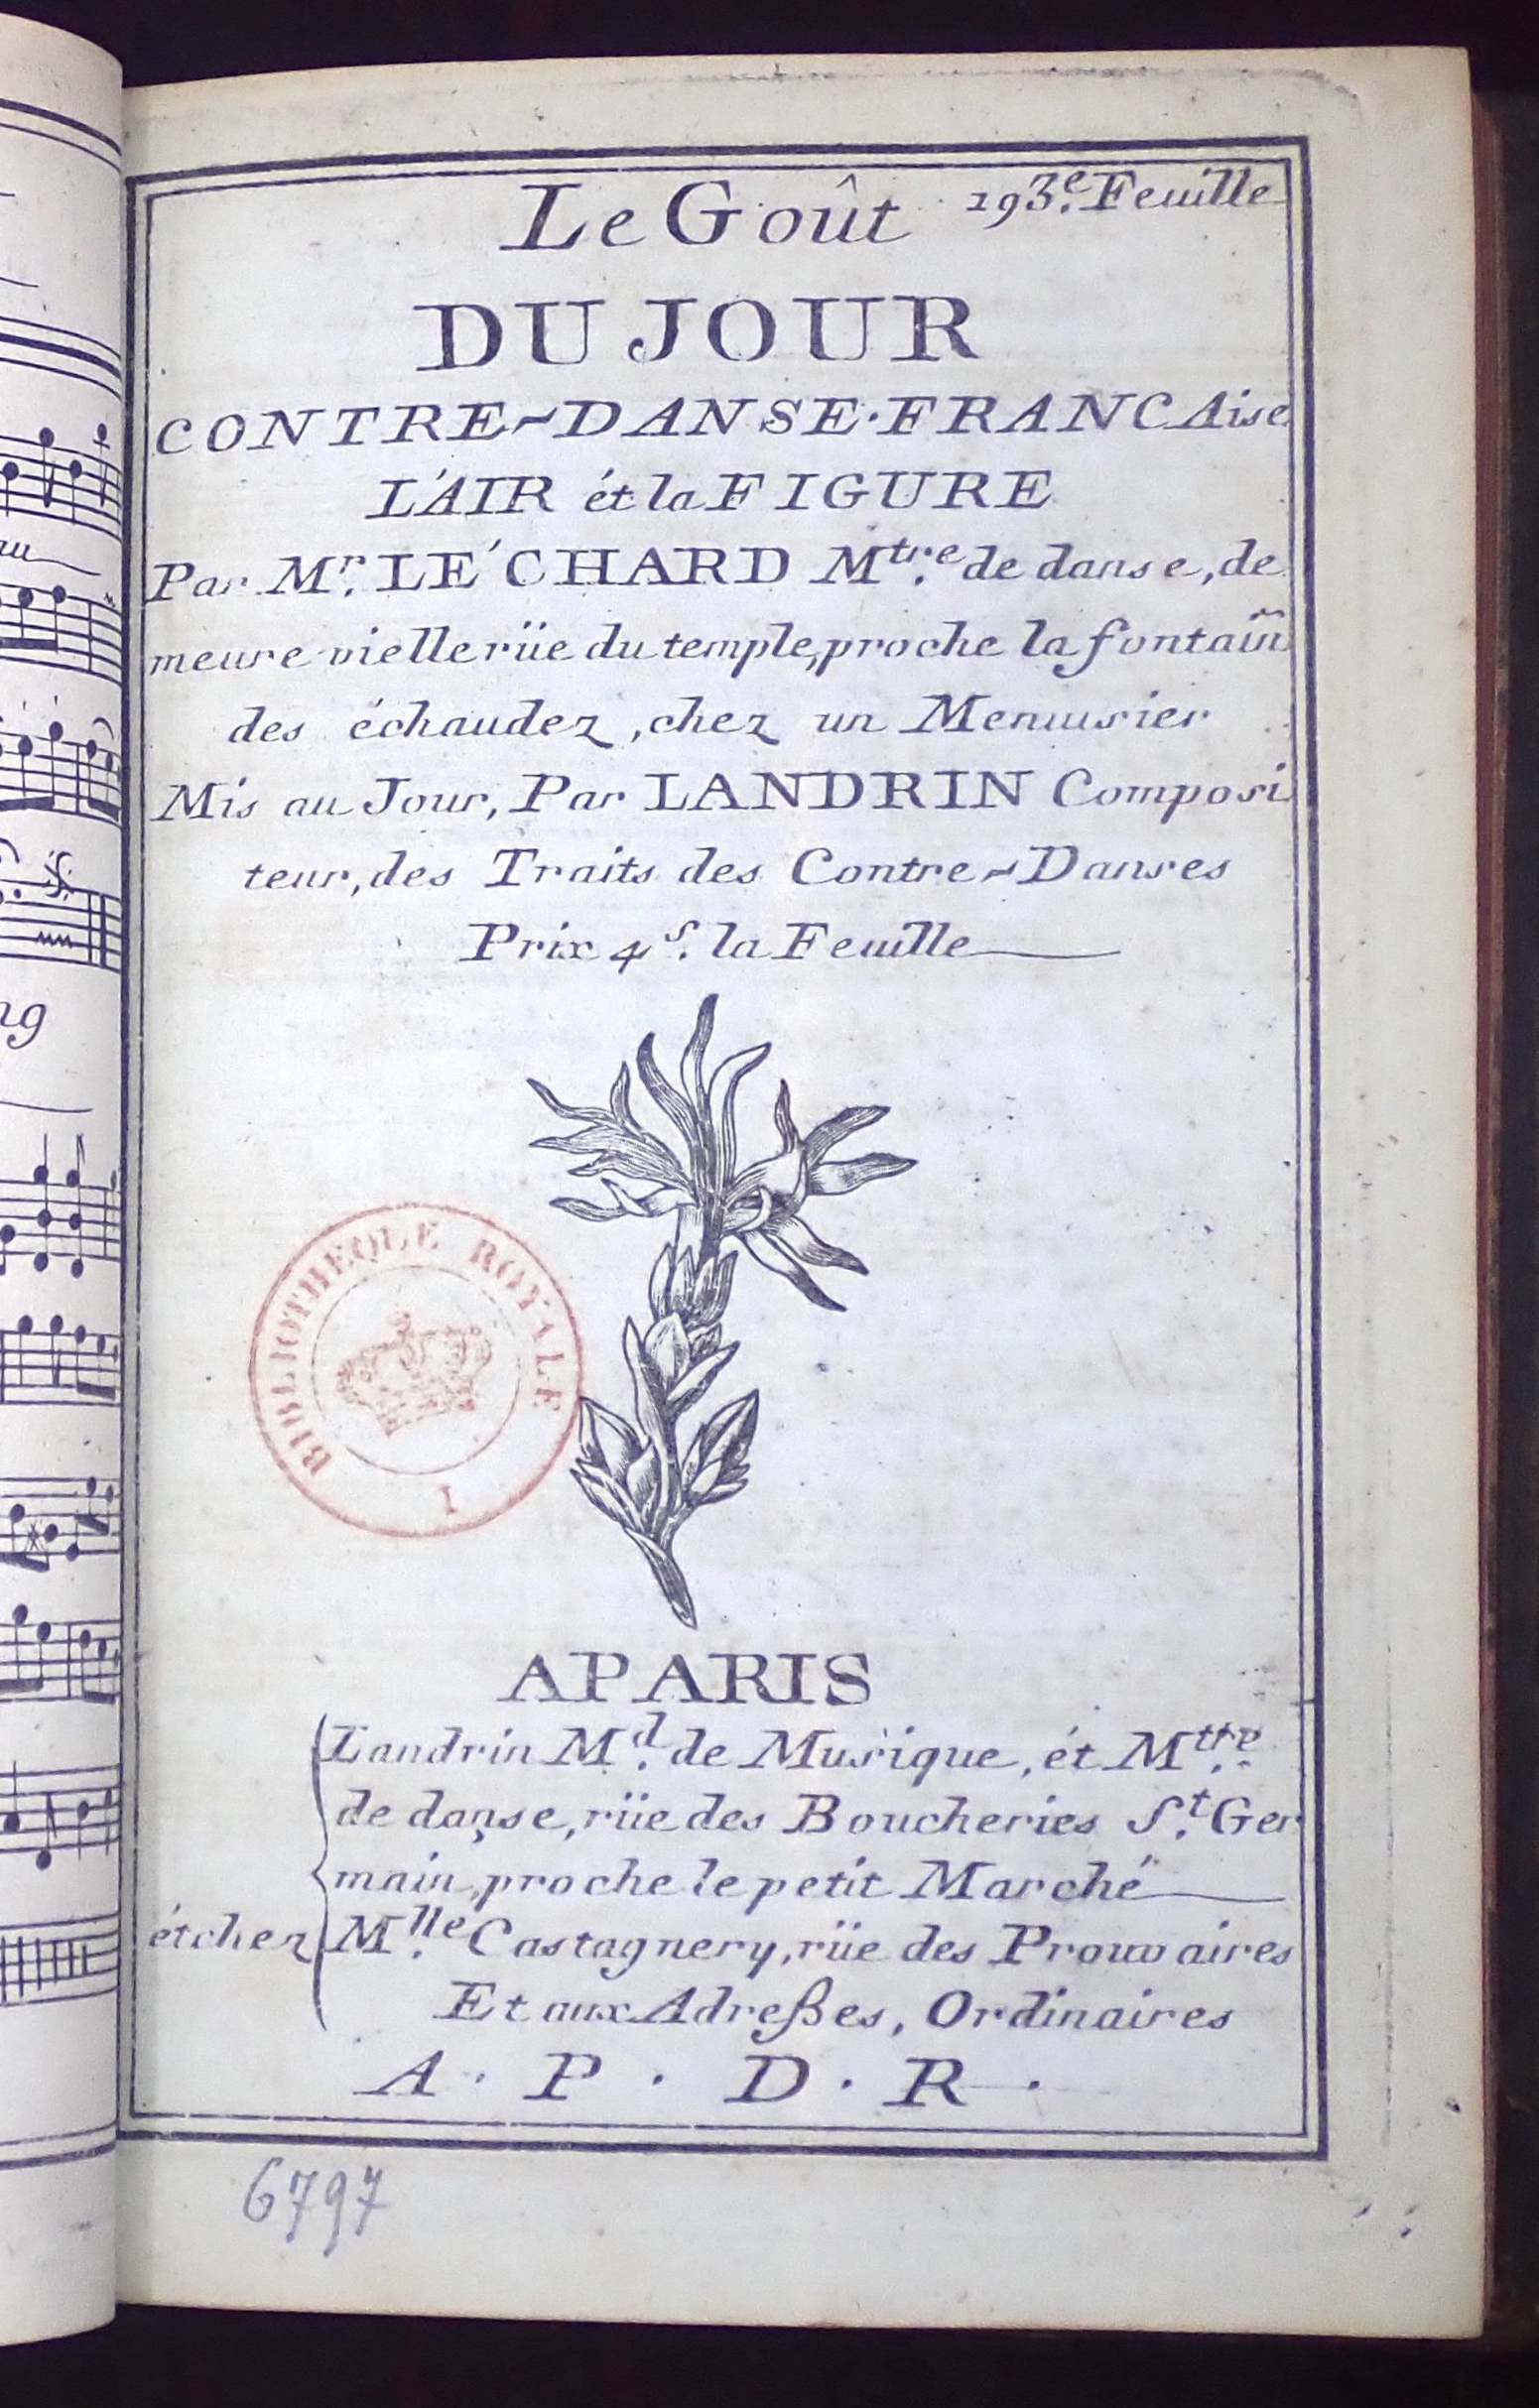 Le Goût 193.e Feuille
DU JOUR
CONTRE-DANSE·FRANCAise
L'AIR ét la FIGURE
Par Mr. LE'CHARD Mtre. de danse, de
meure vielle rüe du temple, proche la fontain
des échaudez, chez un Menuisier
Mis au Jour, Par LANDRIN Composi
teur, des Traits des Contre-Danses
Prix 4 s. la Feuille
BIBLIOTHEQUE ROYALE
I
A PARIS
Landrin Md. de Musique, ét Mttre.
de danse, rüe des Boucheries St. Ger
main, proche le petit Marché
ét chez Mlle. Castagnery, rüe des Prouvaires
Et aux Adreßes, Ordinaires
A · P · D · R ·
6797